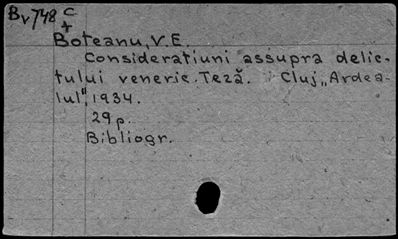 Bv 748 c
+
Boteanu, V.E.
Consideratiuni assupra delic-
tului veneric. Teză. Cluj, „Ardea-
lul", 1934.
29 p.
Bibliogr.